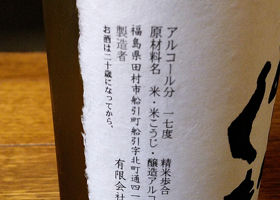 アルコール分 一七度 精米歩合
原材料名 米・米こうじ・醸造アルコ
製造者
福島県田村市船引町船引字北町通四一
有限会社
お酒は二十歳になってから。